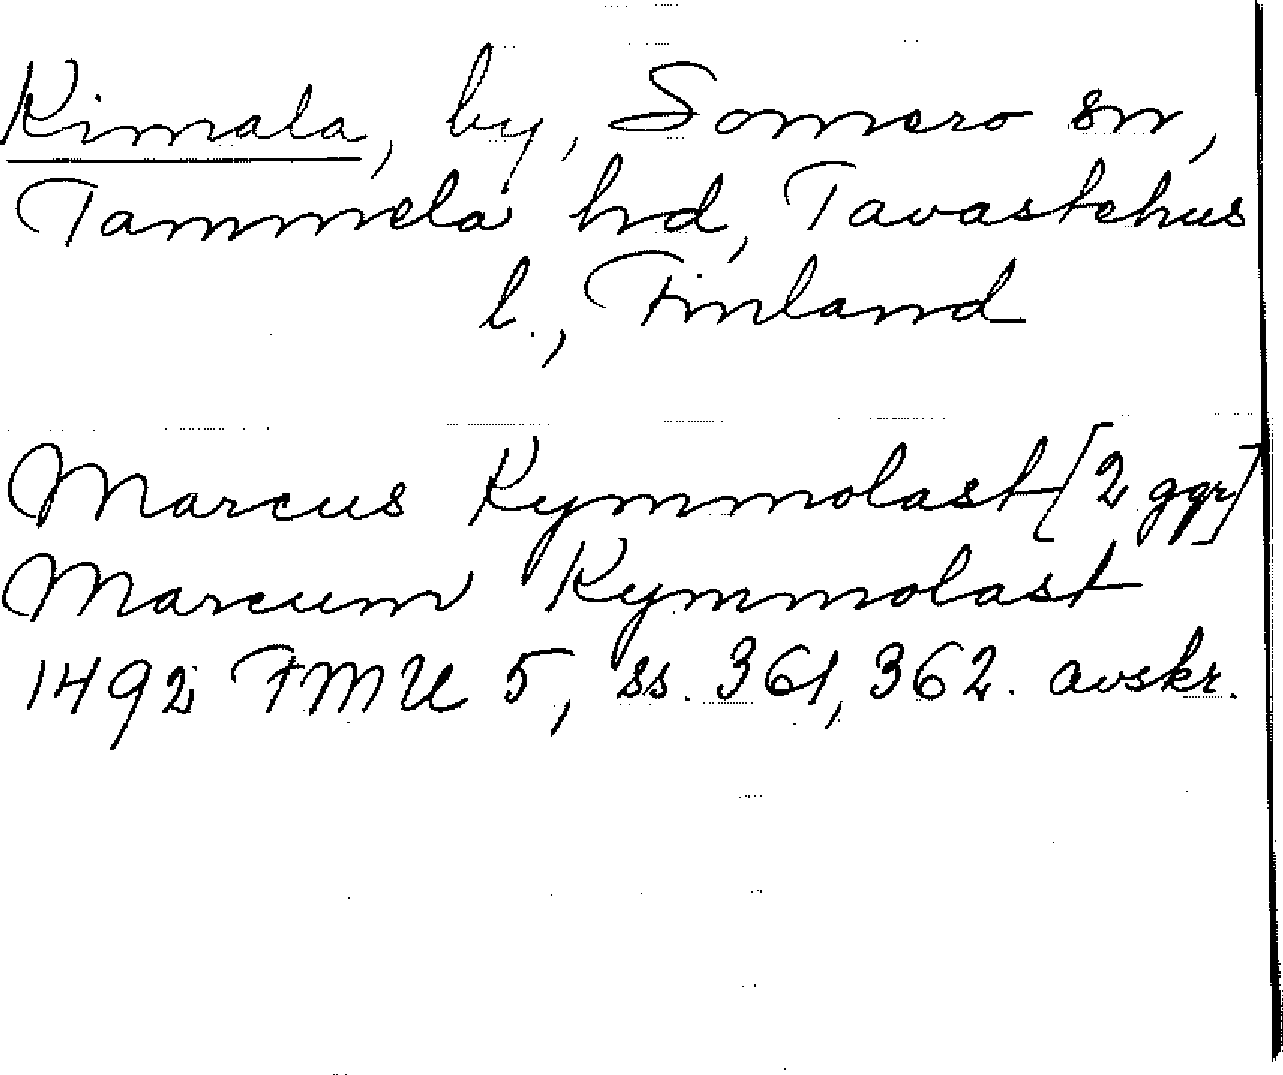 Kimala, by, Somero sn,
Tammela hd, Tavastehus
l., Finland
Marcus Kymmolast [2 ggr]
Marcum Kymmolast
1492 FMU 5, ss. 361, 362. avskr.